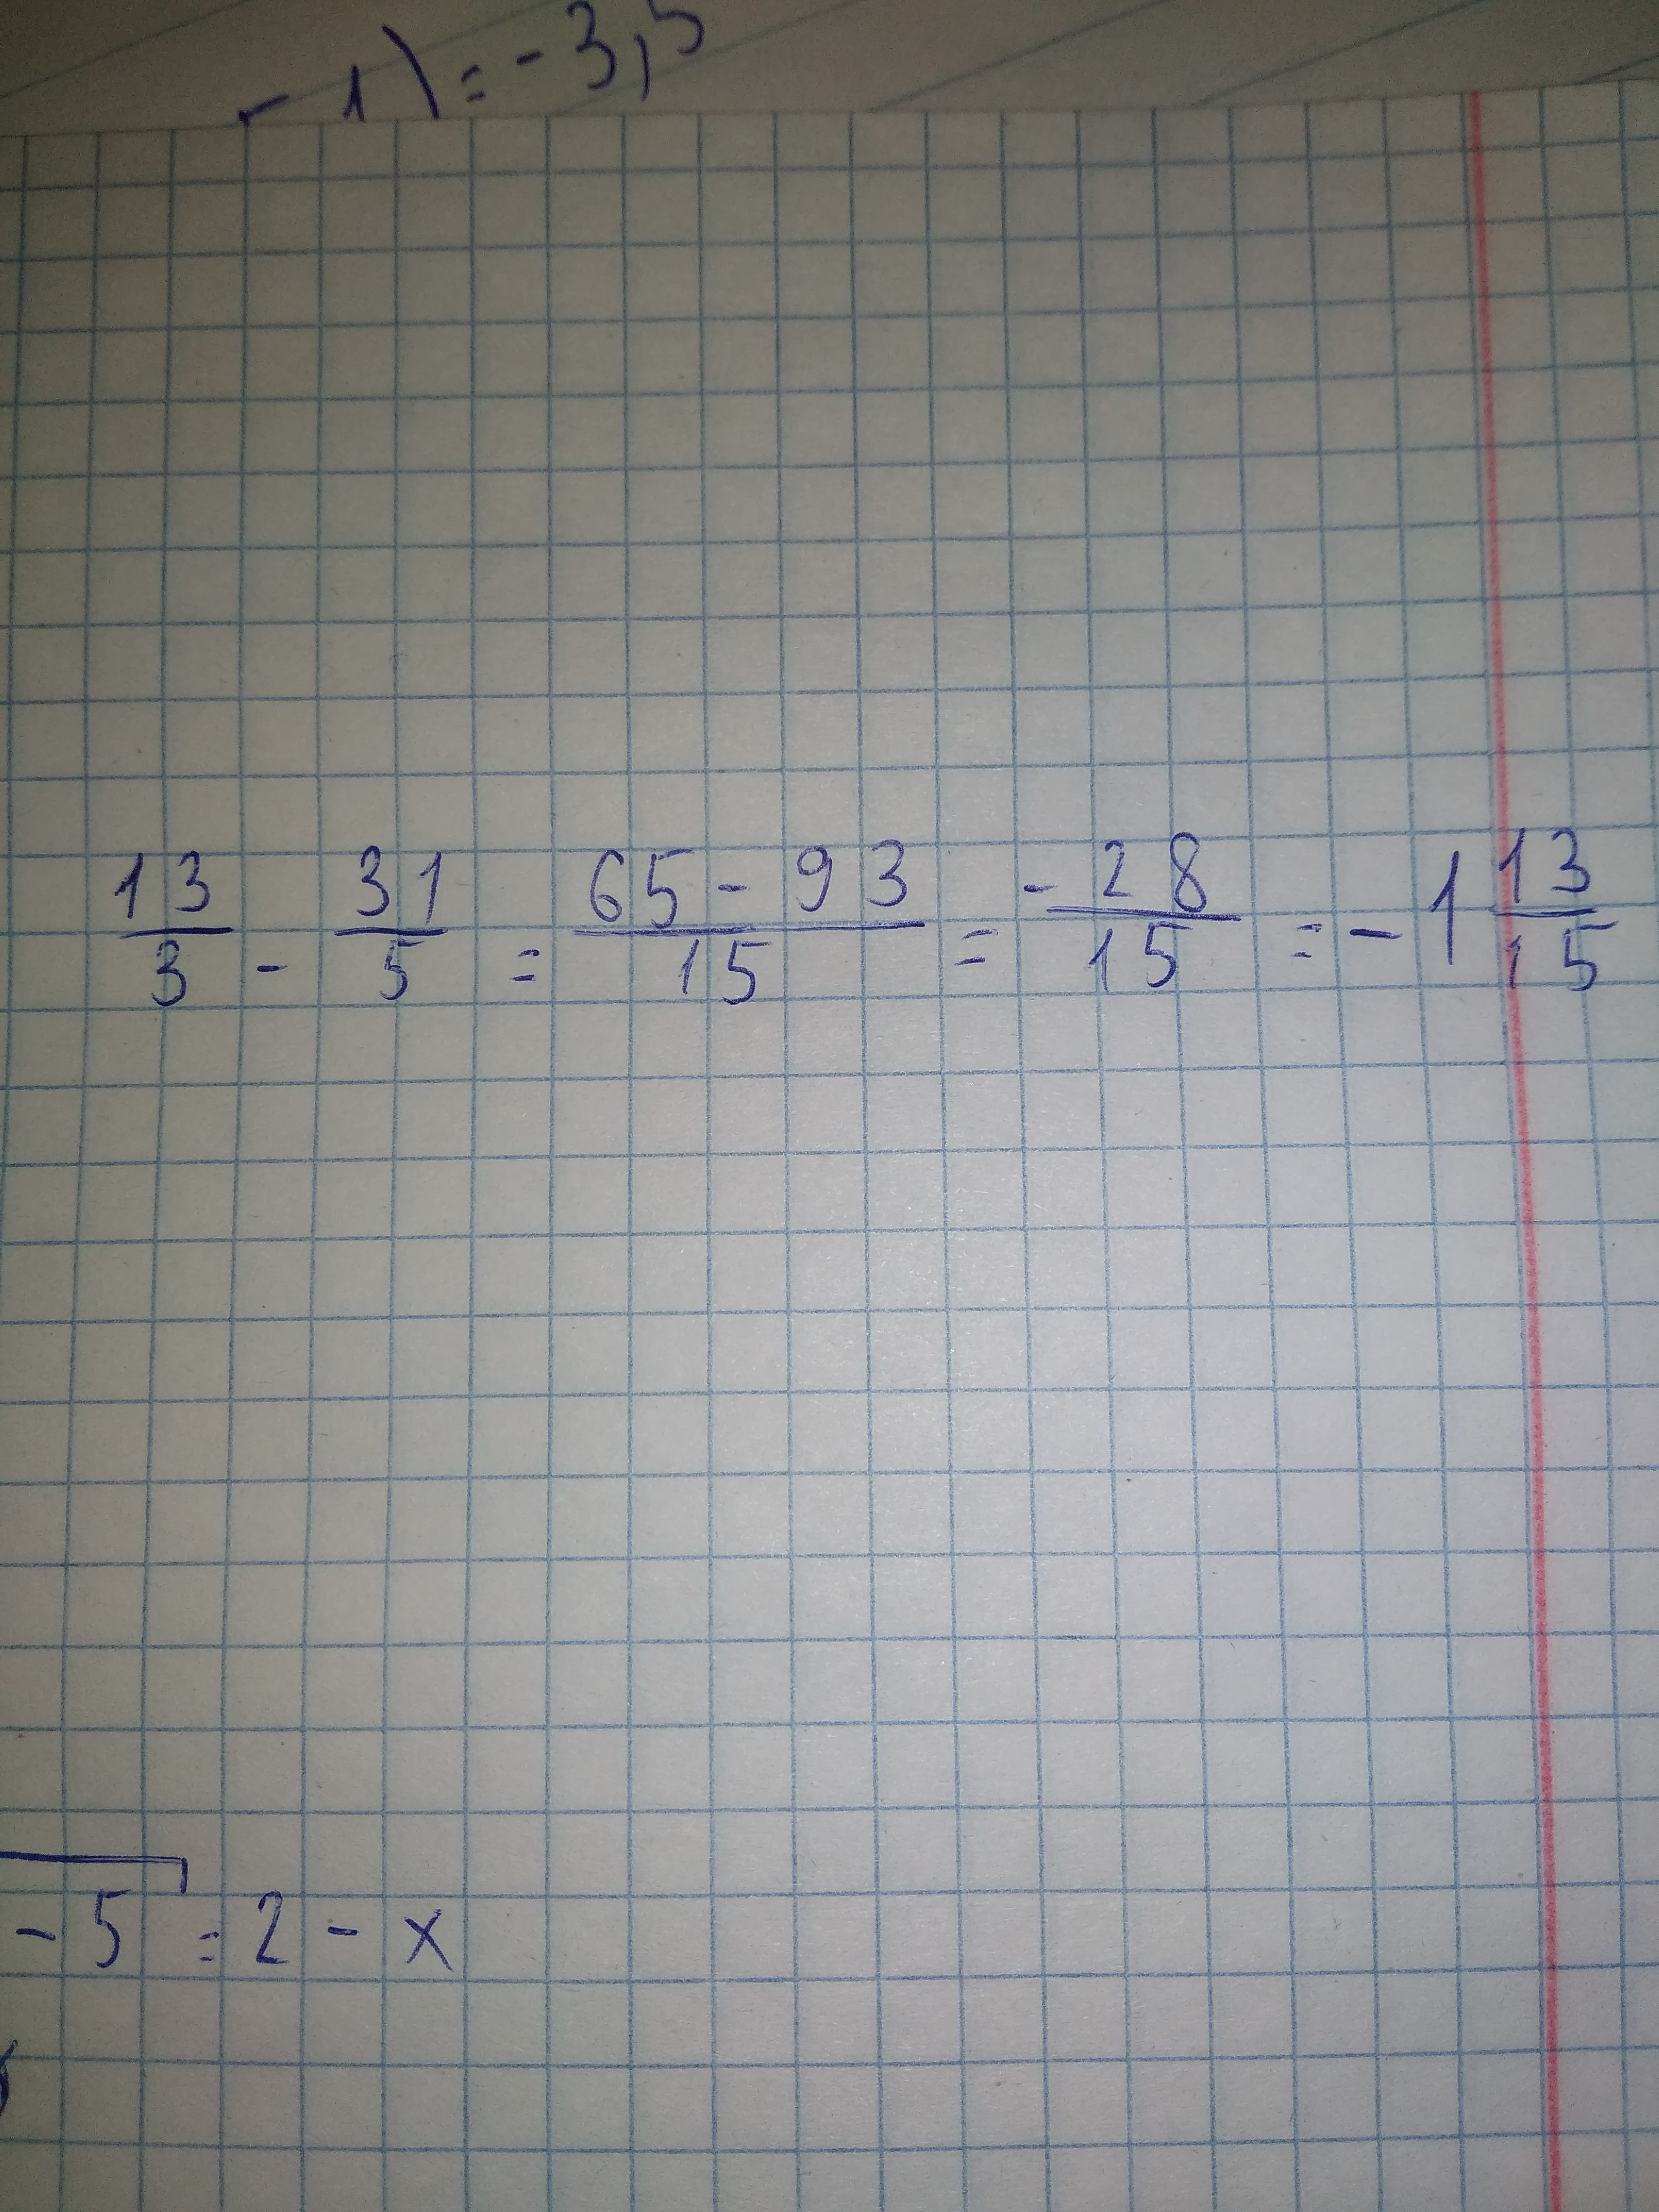 - 1) = - 3,5
13/3 - 31/5 = 65 - 93/15 = - 28/15 = - 1 13/15
- 5 = 2 - x